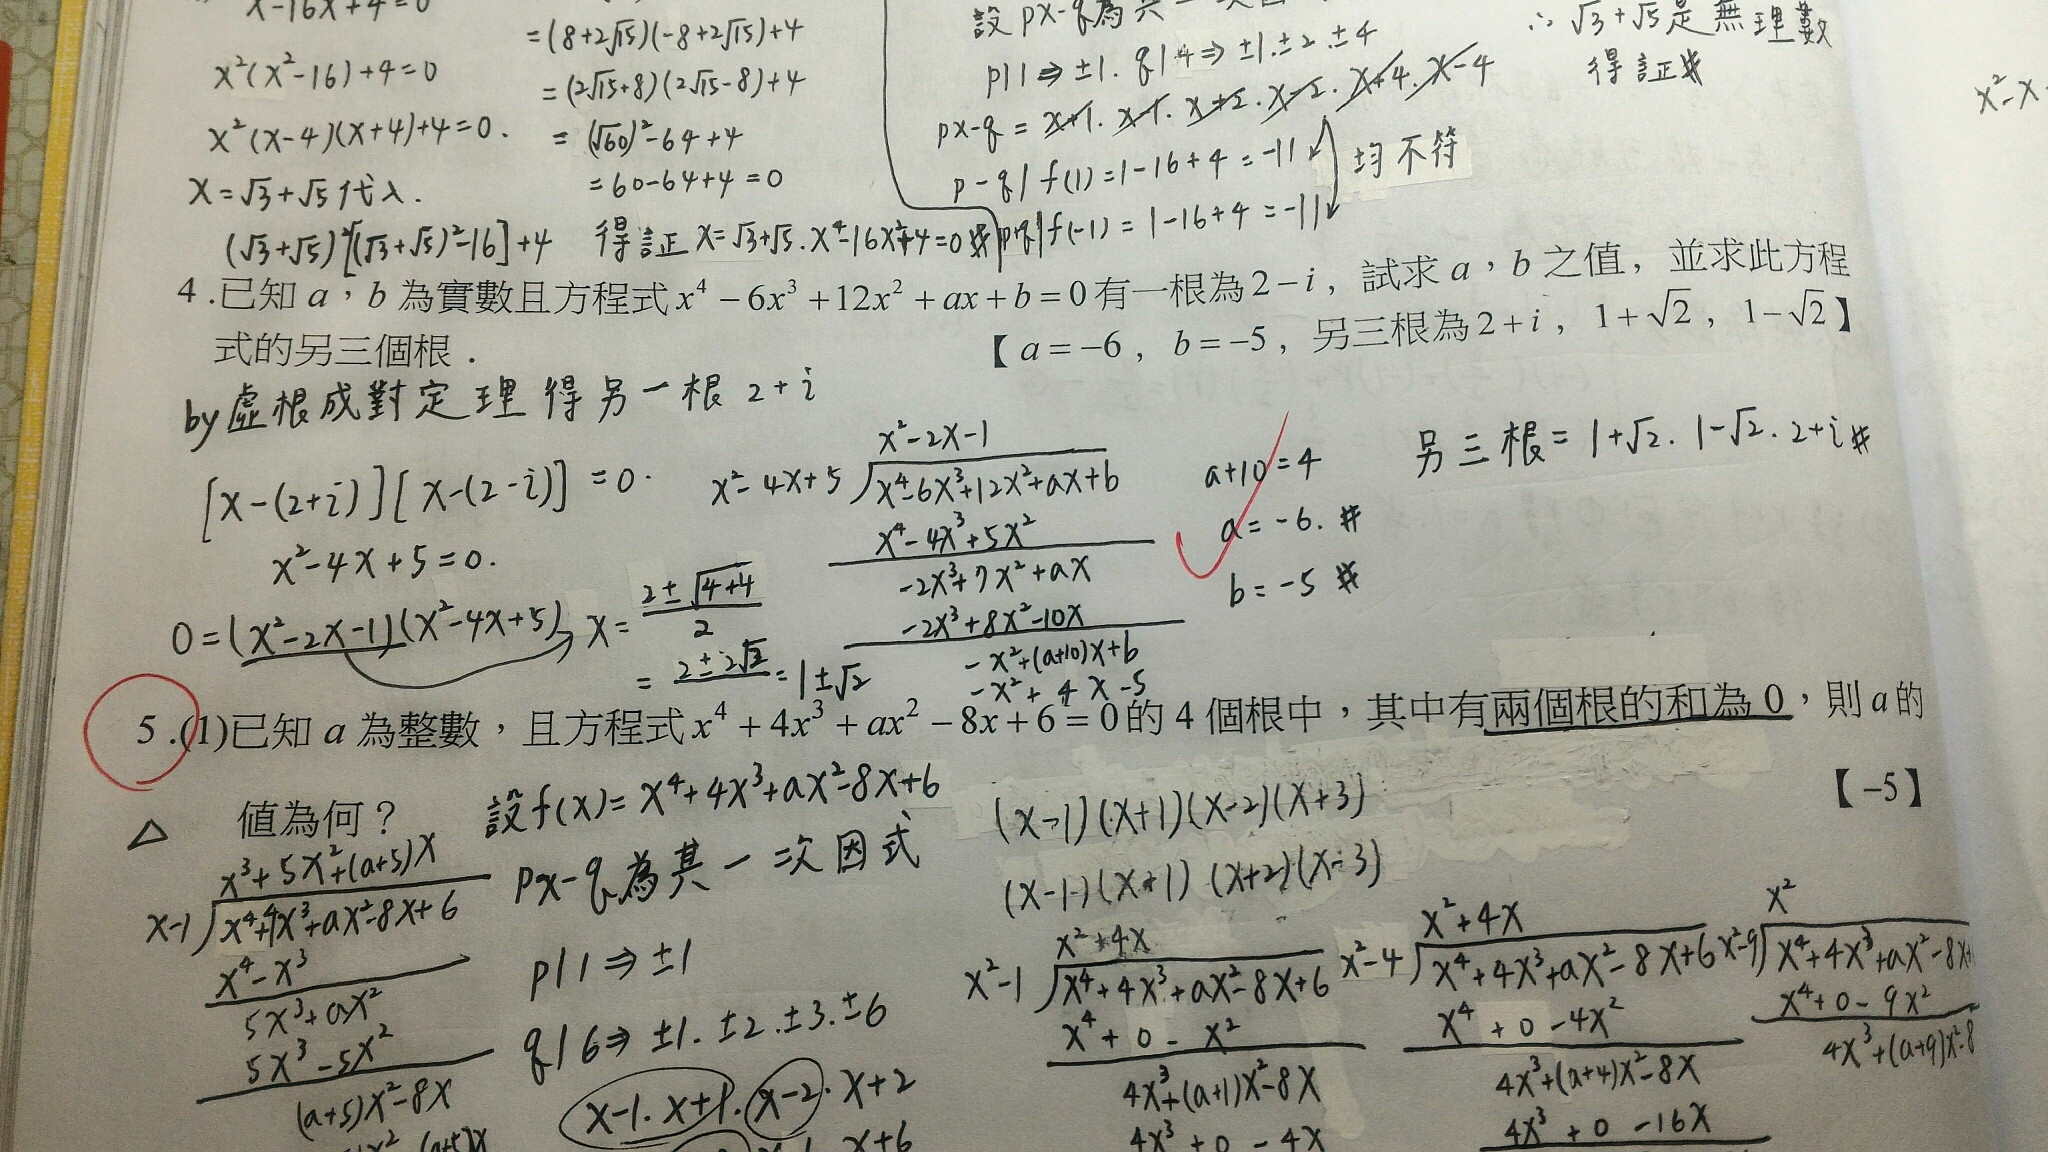 x-16x+4=0
x²(x²-16)+4=0
x²(x-4)(x+4)+4=0.
x=√3+√5代入.
(√3+√5)²[(√3+√5)²-16]+4
=(8+2√15)(-8+2√15)+4
=(2√15+8)(2√15-8)+4
=(√60)²-64+4
=60-64+4=0
得証 x=√3+√5.x⁴-16x²+4=0 #
設px-q為其一次因
p|1⇒±1.q|4⇒±1.±2.±4
px-q=x+1.x-1.x+2.x-2.x+4.x-4
p-q|f(1)=1-16+4=-11
p+q|f(-1)=1-16+4=-11
均不符
∴√3+√5是無理數
得証#
x²-x
4.已知a,b為實數且方程式x⁴-6x³+12x²+ax+b=0有一根為2-i,試求a,b之值,並求此方程
式的另三個根.
【a=-6,b=-5,另三根為2+i,1+√2,1-√2】
by虛根成對定理得另一根2+i
[x-(2+i)][x-(2-i)]=0.
x²-4x+5=0.
0=(x²-2x-1)(x²-4x+5)
x=2±√4+4/2
=2±2√2/2=1±√2
x²-2x-1
x²-4x+5)x⁴-6x³+12x²+ax+b
x⁴-4x³+5x²
-2x³+7x²+ax
-2x³+8x²-10x
-x²+(a+10)x+b
-x²+4x-5
a+10=4
a=-6.#
b=-5#
另三根=1+√2.1-√2.2+i#
5.(1)已知a為整數,且方程式x⁴+4x³+ax²-8x+6=0的4個根中,其中有兩個根的和為0,則a的
值為何?
【-5】
設f(x)=x⁴+4x³+ax²-8x+6
px-q為其一次因式
p|1⇒±1
q|6⇒±1.±2.±3.±6
x-1.x+1.x-2.x+2
x+6
x³+5x²+(a+5)x
x-1)x⁴+4x³+ax²-8x+6
x⁴-x³
5x³+ax²
5x³-5x²
(a+5)x²-8x
(x-1)(x+1)(x-2)(x+3)
(x-1)(x+1)(x+2)(x-3)
x²+4x
x²-1)x⁴+4x³+ax²-8x+6
x⁴+0-x²
4x³+(a+1)x²-8x
4x³+0-4x
x²+4x
x²-4)x⁴+4x³+ax²-8x+6
x⁴+0-4x²
4x³+(a+4)x²-8x
4x³+0-16x
x²
x²-9)x⁴+4x³+ax²-8x
x⁴+0-9x²
4x³+(a+9)x²-8